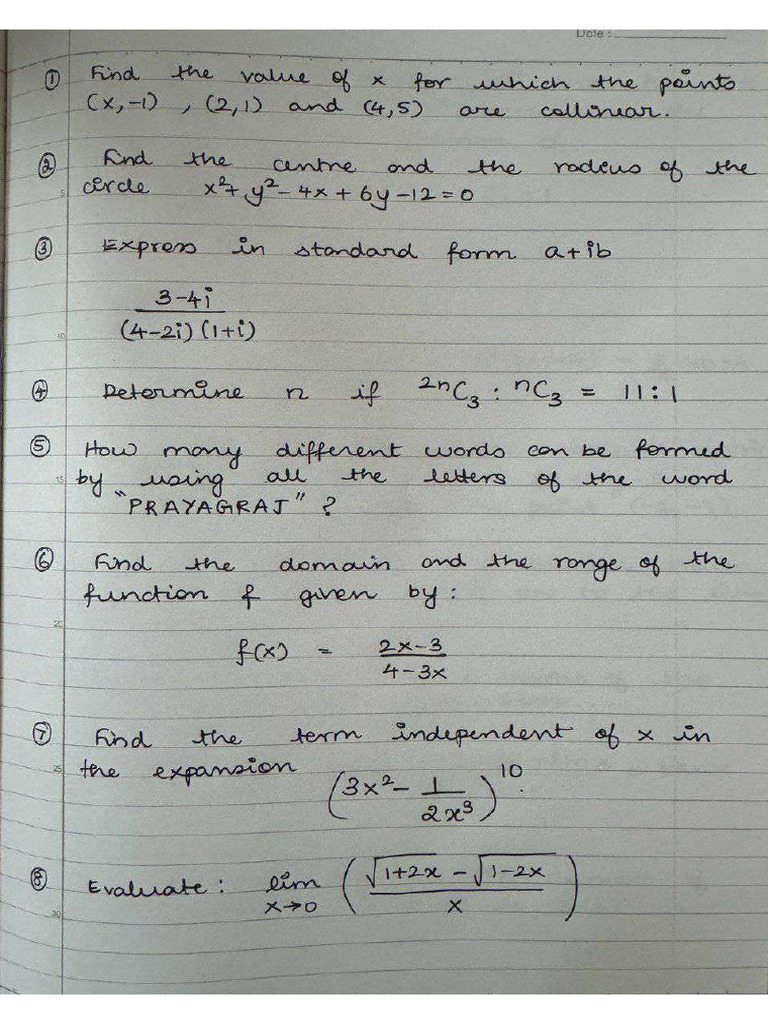 Date :
① Find the value of x for which the points
(x,-1) , (2,1) and (4,5) are collinear.
② Find the centre and the radius of the
circle x²+ y²- 4x + 6y -12 = 0
③ Express in standard form a+ib
3-4i
(4-2i) (1+i)
④ Determine n if ²ⁿC₃ : ⁿC₃ = 11 : 1
⑤ How many different words can be formed
by using all the letters of the word
"PRAYAGRAJ" ?
⑥ Find the domain and the range of the
function f given by :
f(x) = 2x-3
4-3x
⑦ Find the term independent of x in
the expansion (3x² - 1 / 2x³)¹⁰.
⑧ Evaluate : lim x→0 ( √1+2x - √1-2x / x )
5
10
15
20
25
30